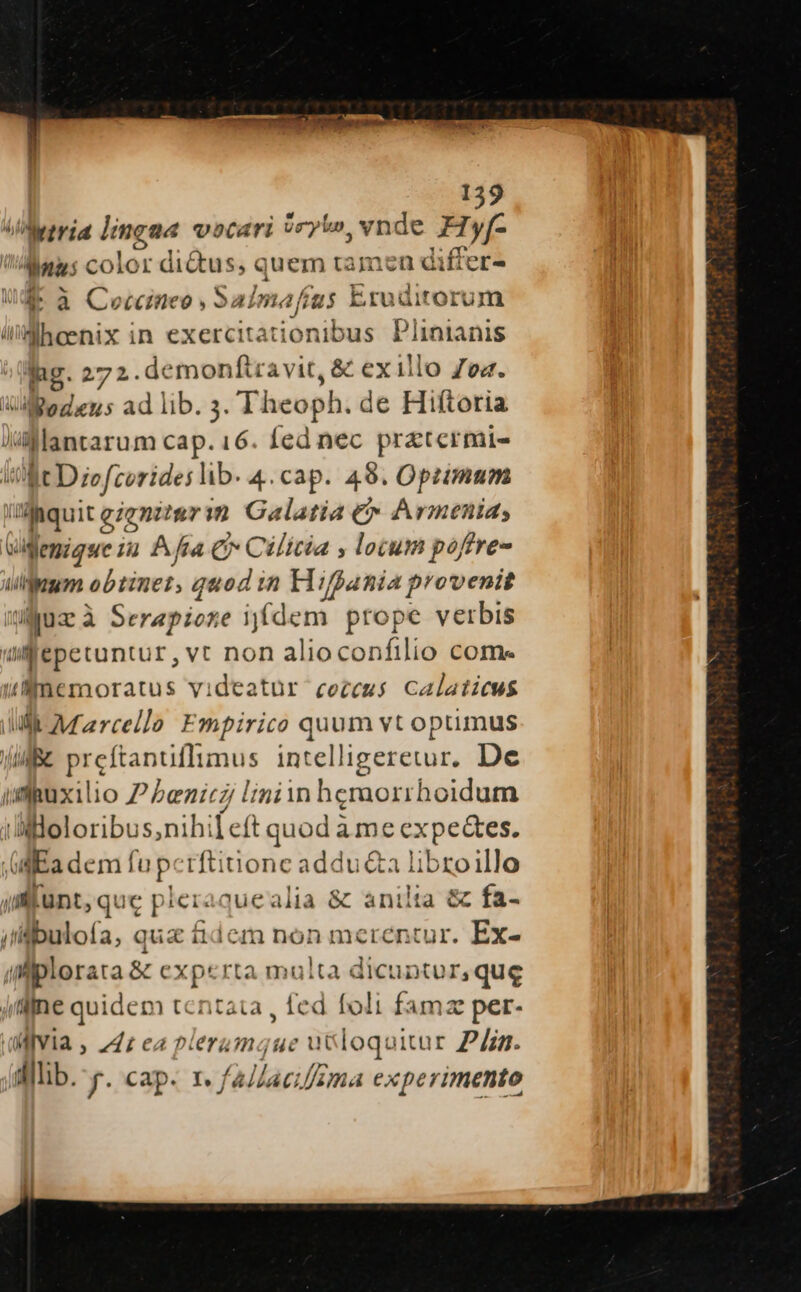 139
lingua vocari ὕσγῳ, vnde Hyſ-
color dictus, quem tamen differ-
à Coccineo, Salmaſius Eruditorum
in exercitationibus Plinianis
272. demonſtravit, & ex illo
ad lib. 3. Theoph. de Hiſtoria
cap. 16. ſed nec prætermi-
Dioſcorides lib. 4. cap. 48. Optimum
gignitur in Galatia & Armenia,
in Aſia & Cilicia, locum poſtre-
obtinet, quod in Hiſpania provenit
à Serapione ijſdem prope verbis
vt non alio conſilio com-
videatur coccus Calaticus
Marcello Empirico quum vt optimus
preſtantiſſimus intelligeretur. De
Phœnicij lini in hemorrhoidum
nihil eſt quod à me expectes.
ſuperſtitione adducta libro illo
que pleraque alia & anilia & fa-
quæ fidem non merentur. Ex-
& experta multa dicuntur, que
quidem tentata, ſed ſoli famæ per-
At ea plerumque utloquitur Plin.
lib. 5. cap. 1. fallaciſſima experimento